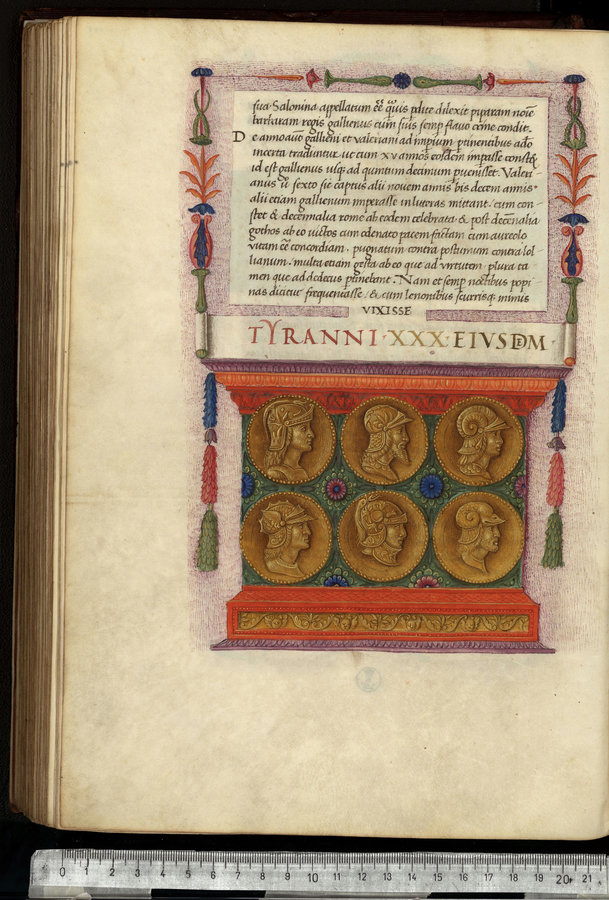 sua. Salonina appellatum eē quis pdite dilexit piparam noīe
barbaram regis gallienus cum suis semp flauo crine condit.
De annis aūt gallieni et valeriani ad impium ptinentibus adō
incerta traduntur ut cum xv annos eosdem impasse constet
id est gallienus usq ad quintum decimum puenisset. Valeri-
anus ū sexto sit captus alii nouem annis bis decem annis
alii etiam gallienum imperasse in litteras mittant. cum con-
stet & decennalia rome ab eodem celebrata. & post decēnalia
gothos ab eo uictos cum odenato pacem factam cum aureolo
initam eē concordiam. pugnatum contra postumum contra lol
lianum. multa etiam gesta ab eo que ad uirtutem. plura ta
men que ad dedecus ptinebant. Nam et semp noctibus popi
nas dicitur frequentasse. & cum lenonibus scurrisq minus
VIXISSE
TYRANNI · XXX · EIVSDEM
0 1 2 3 4 5 6 7 8 9 10 11 12 13 14 15 16 17 18 19 20 21